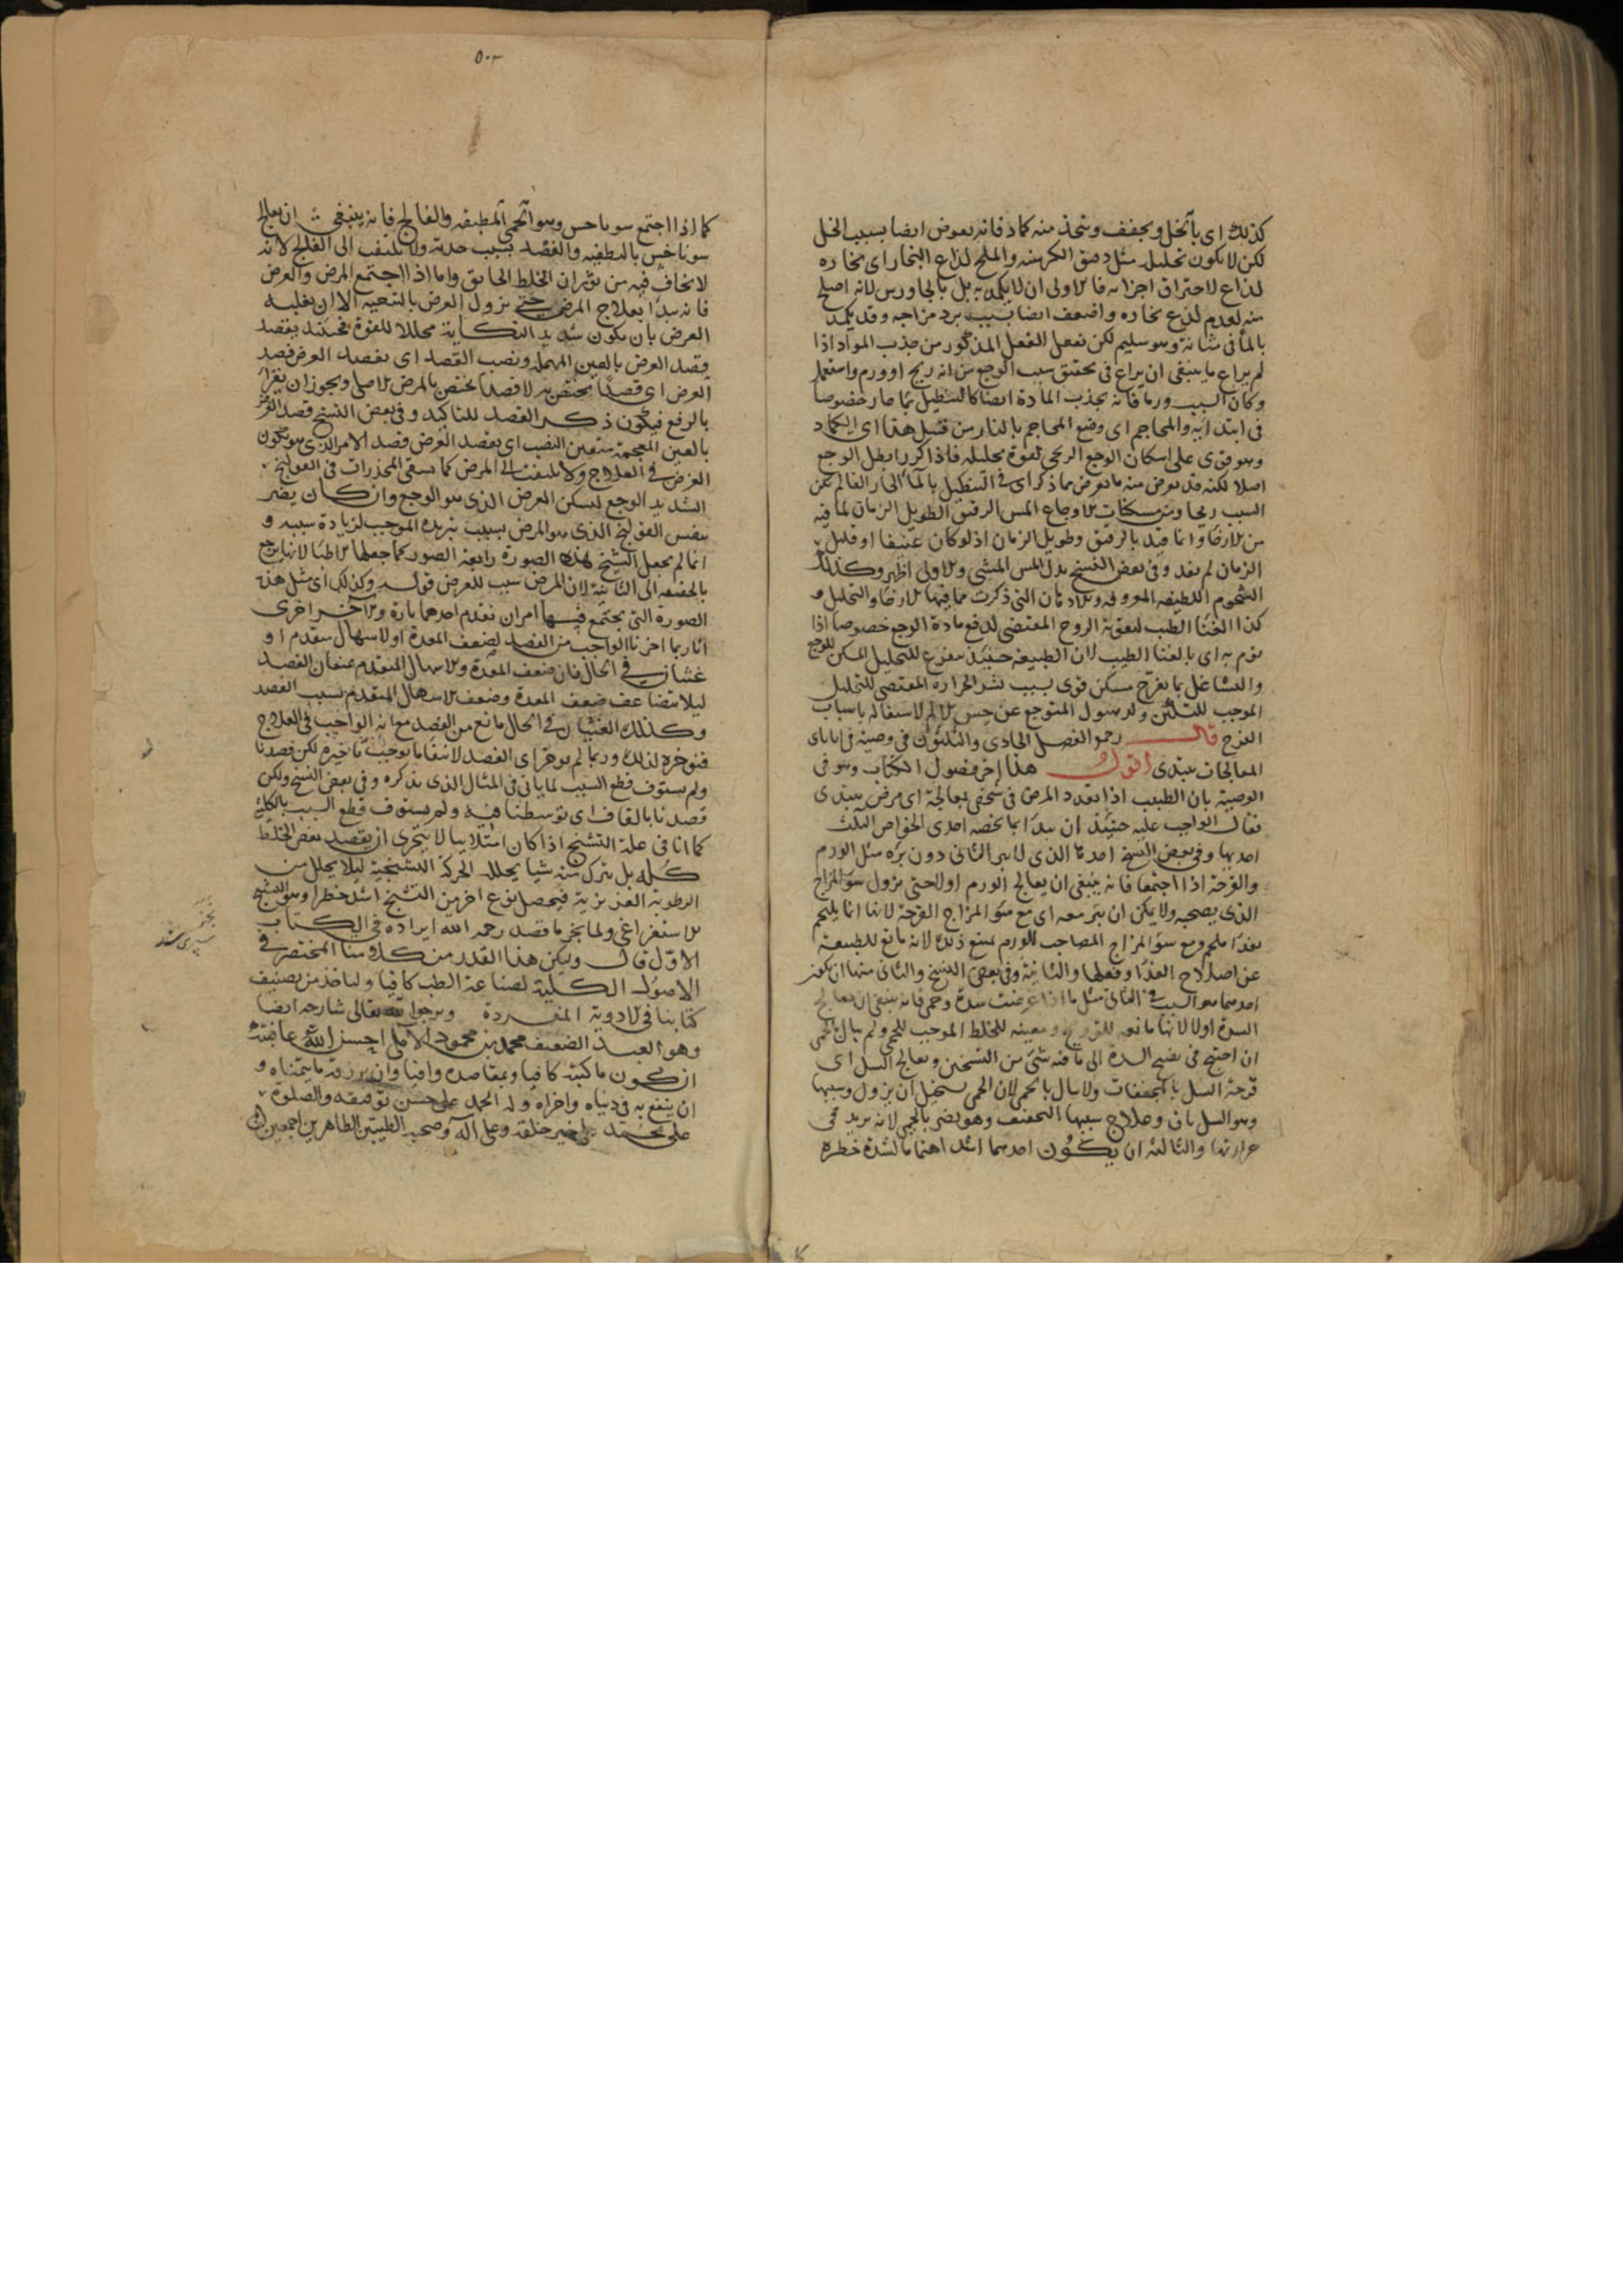 كذلك اى بالخل ويجفف ويتخذ منه كماد فانه يعرض ايضا بسبب الخل
لكن لا يكون تحليله مثل دقيق الكرسنه والملح لذاع البخار اى بخاره
لذاع لاحتراق اجزائه فالاولى ان لا يكمد به بل بالجاورس لانه اصلح
منه لعدم لذع بخاره واضعف ايضا بسبب برد مزاجه وقد يكمد
بالماء فى مثانة وهو سليم لكن يفعل الفعل المذكور من جذب المواد اذا
لم يراع ما ينبغى ان يراع فى تحقيق سبب الوجع من انه ريح او ورم واستعمل
وكان السبب ورما فانه يجذب المادة ايضا كالتنطيل بماء حار خصوصا
فى ابتدائه والمحاجم اى وضع المحاجم بالنار من قبيل هذا اى الكماد
وهو قوى على اسكان الوجع الريحى لقوة تحليله فاذا كرر ابطل الوجع
اصلا لكنه قد يعرض منه ما يعرض مما ذكر اى فى التنطيل بالماء الحار الغالم يكن
السبب ريحا ومن مسكنات الاوجاع المس الرقيق الطويل الزمان لما فيه
من الارخاء وانما قيد بالرقيق وطويل الزمان اذ لو كان عنيفا او قليل
الزمان لم يفد وفى بعض النسخ بدل المس المشى والاولى اظهر وكذلك
الشحوم اللطيفه المعروفه والادهان التى ذكرت مما فيها الارخاء والتحليل و
كذا الغناء الطيب لتقوية الروح المقتضى لدفع مادة الوجع خصوصا اذا
نوم به اى بالغناء الطيب لان الطبيعه حينئذ تتفرغ للتحليل المسكن للوجع
والتشاغل بما يفرح مسكن قوى بسبب نشر الحرارة المقتضى للتحليل
الموجب للتلين ولذهول المتوجع عن حس الالم لاشتغاله باسباب
الفرح قال رحمه الفصل الحادى والثلثون فى وصية فى انا باى
المعالجات نبتدى اقول هذا اخر فصول الكتاب وهو فى
الوصية بان الطبيب اذا تعدد المرض فى شخص بمعالجة اى مرض يبتدى
فقال الواجب عليه حينئذ ان يبدأ بما يخصه احدى الخواص الثلث
احديها وفى بعض النسخ احدها الذى لا يبرا الثانى دون برءه مثل الورم
والقرحة اذا اجتمعا فانه ينبغى ان يعالج الورم اولا حتى يزول سوء المزاج
الذى يصحبه ولا يمكن ان تبرء معه اى مع سوء المزاج القرحة لانها انما يلتحم
بغذاء ملحم ومع سوء المزاج المصاحب للورم يمتنع ذلك لانه مانع للطبيعة
عن اصلاح الغذاء وفعلها والثانية وفى بعض النسخ والثانى منها ان يكون
احدهما هو السبب فى الثانى مثل ما اذا عرضت سدة وحمى فانه ينبغى ان يعالج
السدة اولا لانها مانعه للترويح ومعينه للخلط الموجب للحمى ولم يبال بالحمى
ان احتيج فى تفتيح السدة الى ما فيه شئ من التسخين ويعالج السل اى
قرحة السل بالمجففات ولا يبال بالحمى لان الحمى يستحيل ان يزول وسببها
وهو السل باق وعلاج سببها التجفيف وهو يضر بالحمى لانه يزيد فى
حرارتها والثالثة ان يكون احدهما اشد اهتماما لشدة خطره
٥٠٣
كما اذا اجتمع سوناخس وهو الحمى المطبقه والفالج فانه ينبغى ان يعالج
سوناخس بالتطفيه والفصد بسبب حدته ولا يلتفت الى الفالج لانه
لا يخاف فيه من ثوران الخلط الحابق واما اذا اجتمع المرض والعرض
فانه يبدأ بعلاج المرض حتى يزول العرض بالتبعيه الا ان يغلبه
العرض بان يكون شديد النكاية محللا للقوة فحينئذ يقصد
وقصد العرض بالعين المهمله ونصب القصد اى يقصد العرض قصد
العرض اى قصدا يختص به لا قصدا يختص بالمرض الاصلى ويجوز ان يقرا
بالرفع فيكون ذكر القصد للتاكيد وفى بعض النسخ قصد الغرض
بالغين المعجمة متعين النصب اى يقصد العرض قصد الامر الذى هو يكون
الغرض فى العلاج ولا يلتفت الى المرض كما يسقى المخدرات فى القولنج
الشديد الوجع ليسكن العرض الذى هو الوجع وان كان يضر
بنفس القولنج الذى هو المرض بسبب تبريده الموجب لزيادة سببه و
انما لم يجعل الشيخ هذه الصورة رابعة الصور كما جعلها الاطبا لانها يرجع
بالحقيقه الى الثانية لان المرض سبب للعرض قوله وكذلك اى مثل هذه
الصورة التى يجتمع فيها امران نقدم احدهما تارة والاخر اخرى
انا ربما اخرنا الواجب من الفصد لضعف المعدة او لاسهال متقدم او
غشيان فى الحال فان ضعف المعدة والاسهال المتقدم يمنعان الفصد
ليلا يتضاعف ضعف المعدة وضعف الاسهال المتقدم بسبب الفصد
وكذلك الغثيان فى الحال مانع من الفصد مع انه الواجب فى العلاج
فنؤخره لذلك وربما لم نؤخر اى الفصد لانتفاء ما يوجب تاخيره لكن فصدنا
ولم نستوف قطع السبب لما ياتى فى المثال الذى نذكره وفى بعض النسخ ولكن
قصدنا بالقاف اى توسطنا فيه ولم نستوف قطع السبب بالكلية
كما انا فى علة التشنج اذا كان امتلائيا لا نتحرى ان نقصد بعض الخلط
كله بل نترك منه شيئا يحلله الحركة التشنجية ليلا يحلل من
الرطوبة الغريزية فيحصل نوع اخر من التشنج اشد خطرا وهو التشنج
الاستفراغى ولما نجز ما قصد رحمه الله ايراده فى الكتاب
الاول قال وليكن هذا القدر من كلامنا المختصر فى
الاصول الكلية لصناعة الطب كافيا ولناخذ من تصنيف
كتابنا فى الادوية المفردة ويرجوا الله تعالى شارحه ايضا
وهو العبد الضعيف محمد بن محمود الاملى احسن الله عاقبته
ان يكون ما كتبه كافيا وبمقاصده وافيا وان يرزقه ما يتمناه و
ان ينتفع به فى دنياه واخراه وله الحمد على حسن توفيقه والصلوة
على محمد خير خلقه وعلى آله وصحبه الطيبين الطاهرين اجمعين